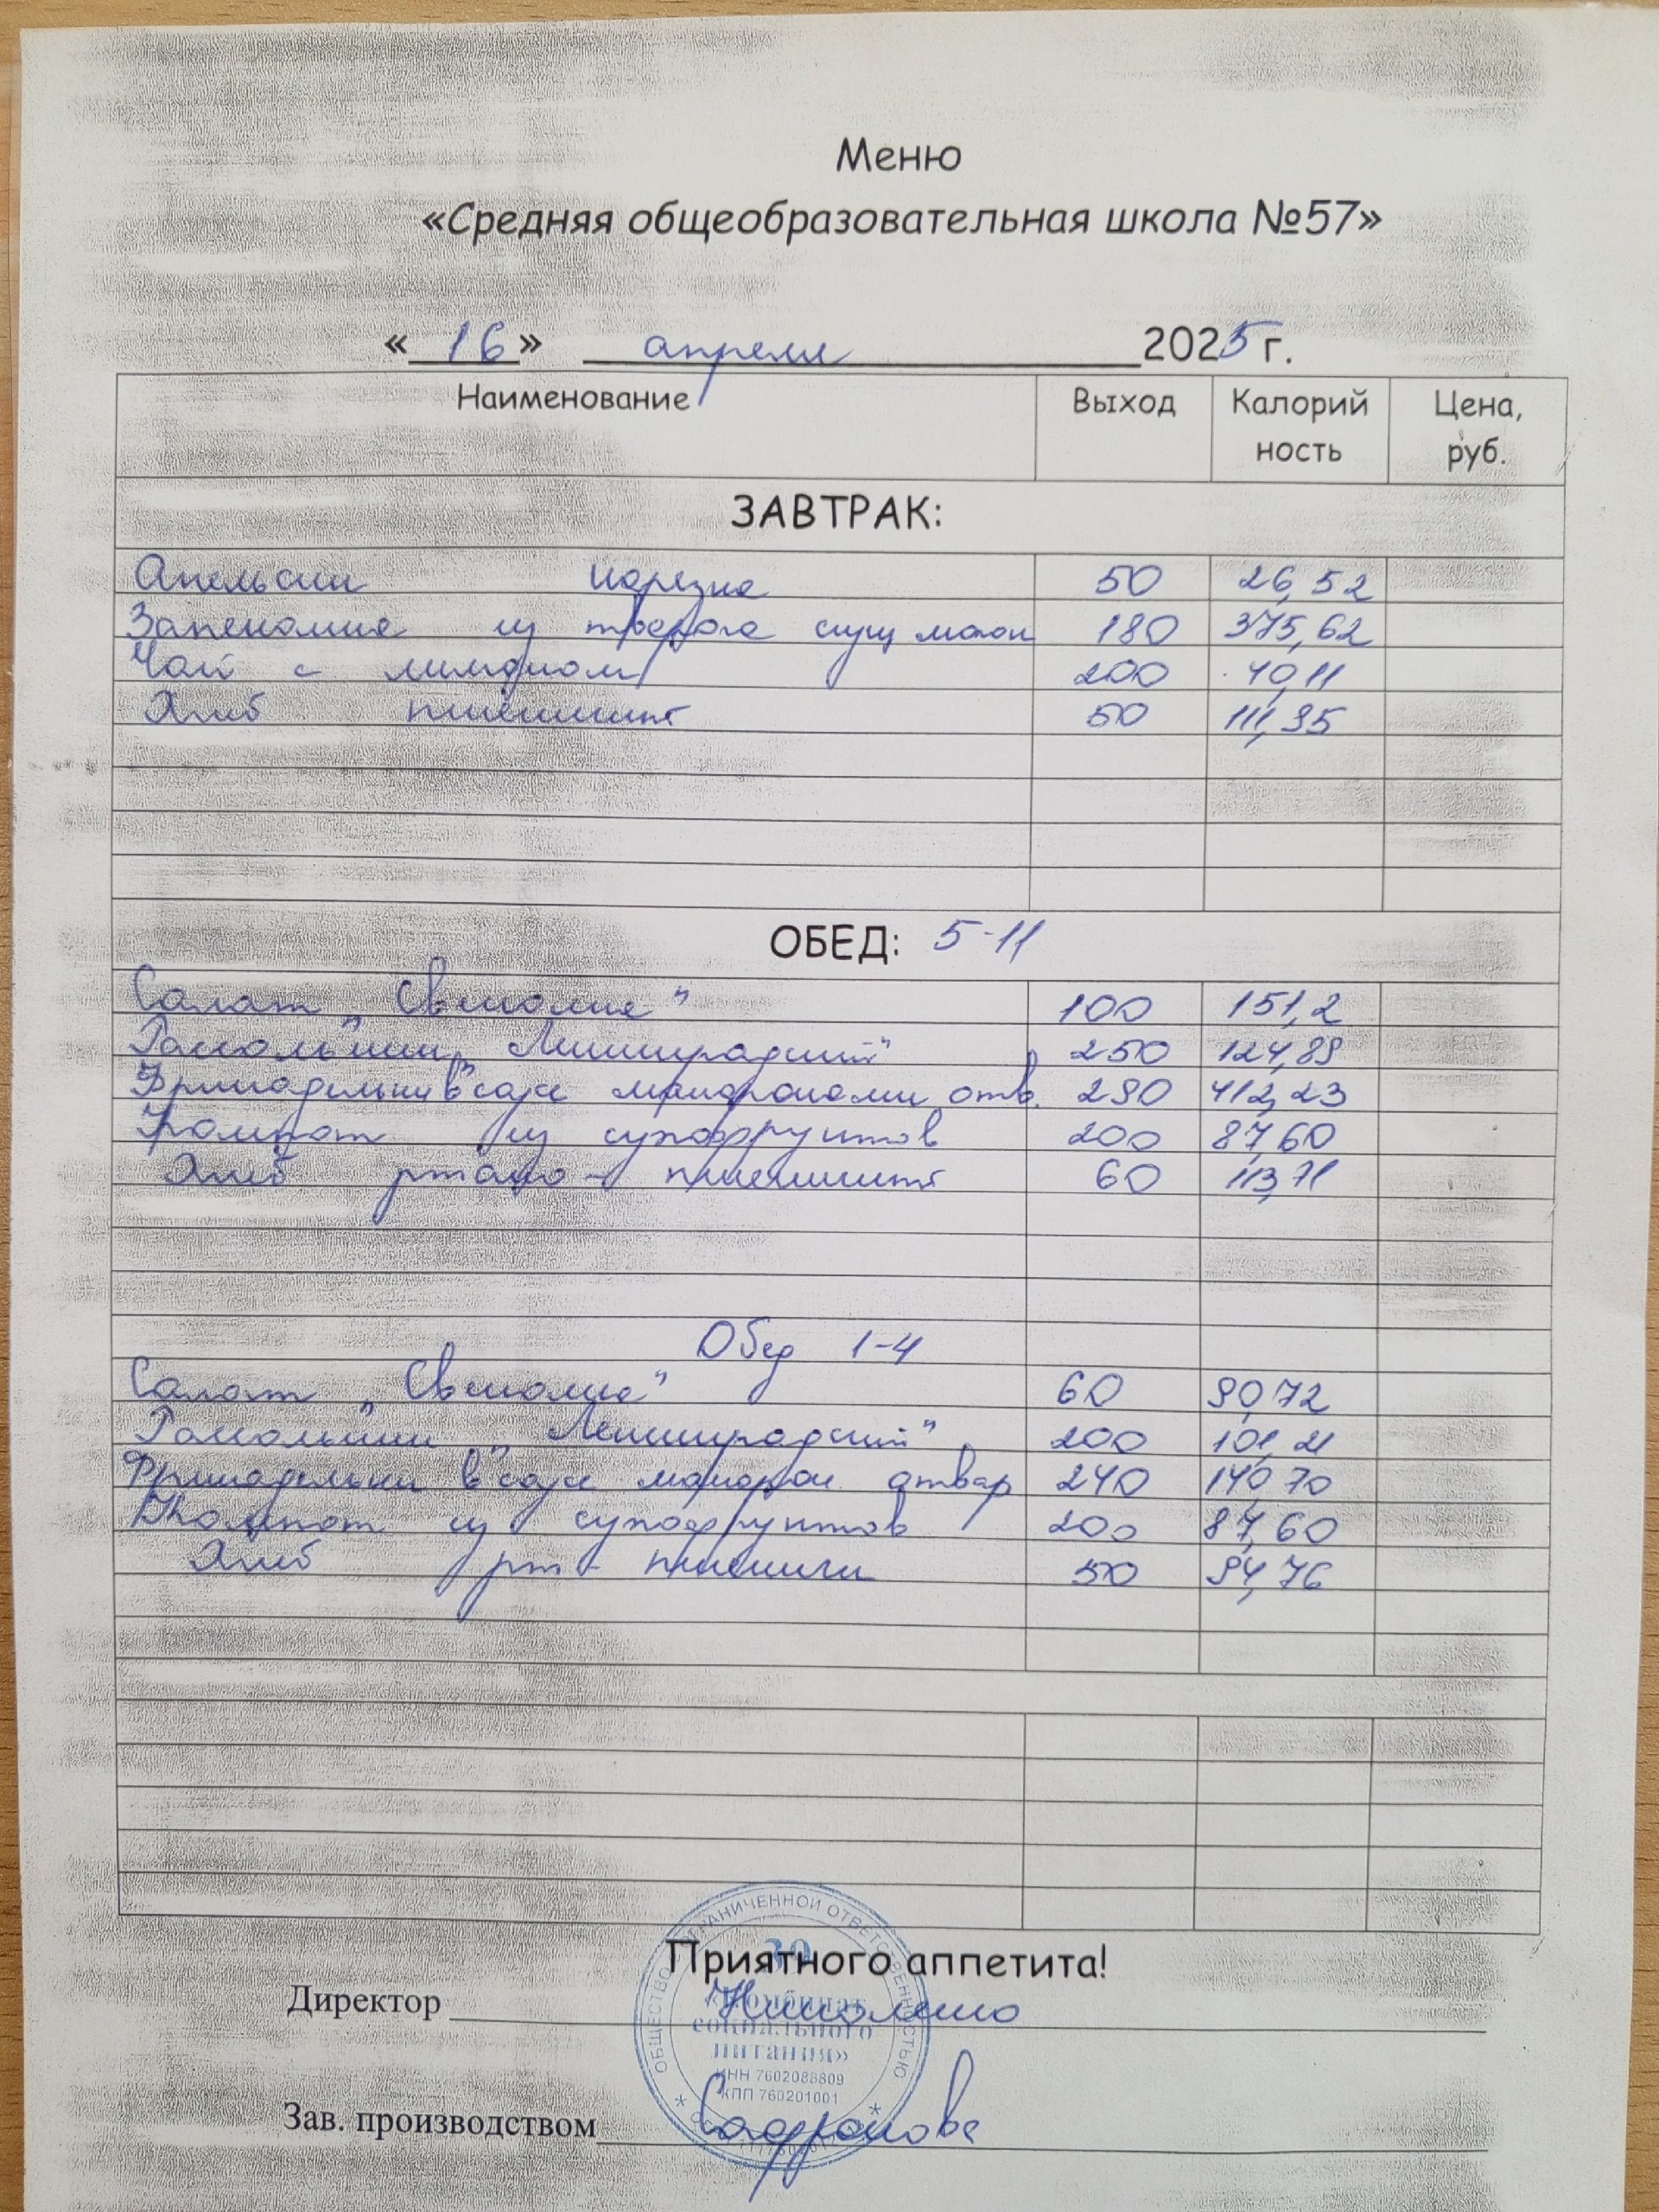 Меню
«Средняя общеобразовательная школа №57»
«16» апреля 2025 г.
Наименование Выход Калорий Цена,
ность руб.
ЗАВТРАК:
Апельсин нарезка 50 26,52
Запеканка из творога сгущ молок 180 375,62
Чай с лимоном 200 40,11
Хлеб пшеничн 50 111,95
ОБЕД: 5-11
Салат „Свеколка" 100 151,2
Рассольник „Ленинградский" 250 124,89
Фрикадельки в соусе макаронами отв. 290 412,23
Компот из сухофруктов 200 87,60
Хлеб ржано-пшеничн 60 113,71
Обед 1-4
Салат „Свеколка" 60 90,72
Рассольник „Ленинградский" 200 101,21
Фрикадельки в соусе макарон отвар 240 140,70
Компот из сухофруктов 200 87,60
Хлеб рж-пшеничн 50 94,76
Приятного аппетита!
Директор Николенко
Зав. производством Сафронова
ОБЩЕСТВО С ОГРАНИЧЕННОЙ ОТВЕТСТВЕННОСТЬЮ
«Комбинат
социального
питания»
ИНН 7602088809
КПП 760201001